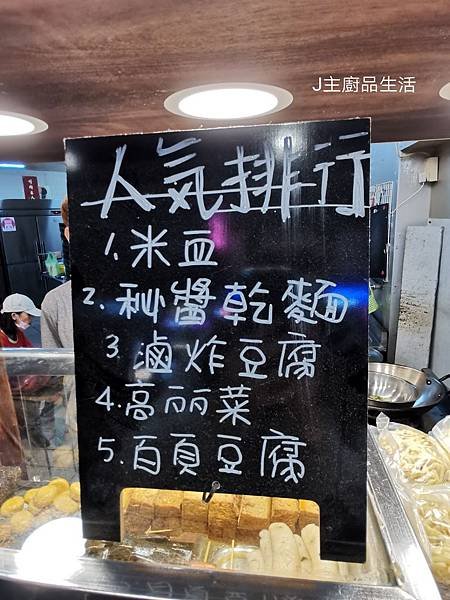 J主廚品生活
人氣排行
1. 米血
2. 秘醬乾麵
3. 滷炸豆腐
4. 高丽菜
5. 百頁豆腐